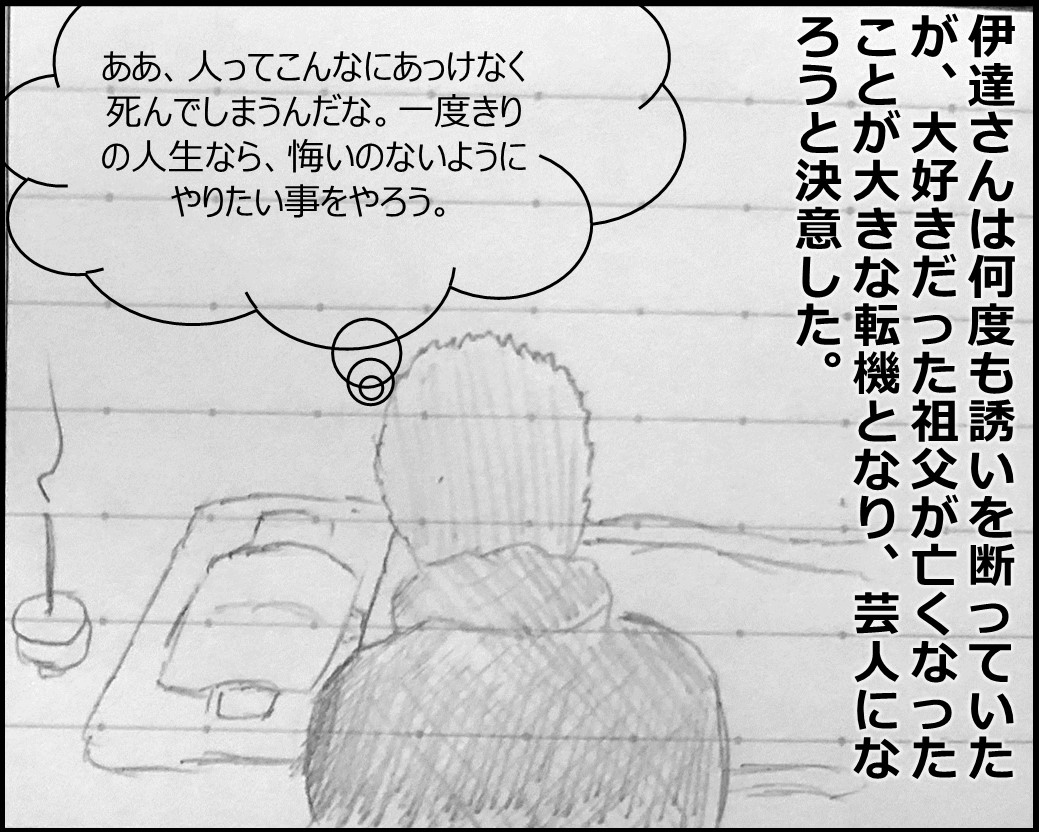 伊達さんは何度も誘いを断っていた
が、大好きだった祖父が亡くなった
ことが大きな転機となり、芸人にな
ろうと決意した。
ああ、人ってこんなにあっけなく
死んでしまうんだな。一度きり
の人生なら、悔いのないように
やりたい事をやろう。